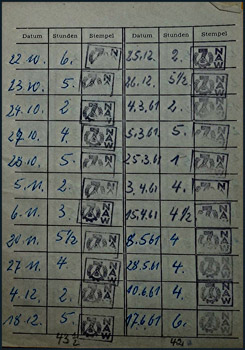 Datum Stunden Stempel Datum Stunden Stempel
22.10. 6. NAW 25.12. 2. NAW
23.10. 5. NAW 26.12. 5 1/2 NAW
24.10. 2 NAW 4.3.61 2. NAW
27.10. 4. NAW 5.3.61 5. NAW
28.10. 5. NAW 25.3.61 1 NAW
5.11. 2. NAW 3.4.61 4. NAW
6.11. 3. NAW 15.4.61 4 1/2 NAW
20.11. 5 1/2 NAW 8.5.61 4. NAW
27.11. 4. NAW 28.5.61 4. NAW
4.12. 2. NAW 10.6.61 4. NAW
18.12. 5. NAW 17.6.61 6. NAW